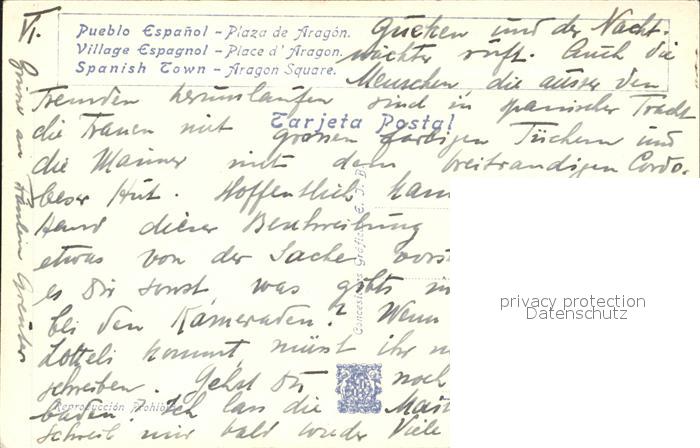 VI.
Pueblo Español - Plaza de Aragón.
Village Espagnol - Place d'Aragon.
Spanish Town - Aragon Square.
Tarjeta Postal
gucken und der Nacht-
wächter ruft. Auch die
Menschen, die ausser den
Fremden herumlaufen sind in spanischer Tracht
die Frauen mit grossen farbigen Tüchern und
die Männer mit dem breitrandigen Cordo-
beser Hut. Hoffentlich kann
Hand dieser Beschreibung
etwas von der Sache vorst
es Dir sonst, was gibts
bei den Kameraden? Wenn
Lotteli kommt, müsst ihr
schreiben. Gehst Du noch
baden? Ich lass die
schreib mir bald wieder Viele
Grüsse an Fräulein
Concesionario Gráficas E. I. B.
Reproducción Prohibida
privacy protection
Datenschutz